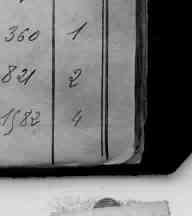 360 1
821 2
1582 4